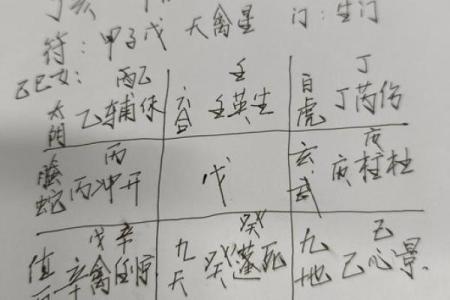 丁亥
符：甲子戊 天禽星 门：生门
乙巳女： 丙乙 壬 丁
太阴 乙辅休 六合 壬英生 白虎 丁芮伤
丙 庚
螣蛇 丙冲开 戊 玄武 庚柱杜
戊辛 癸 己
值 辛禽 九天 癸蓬死 九地 己心景